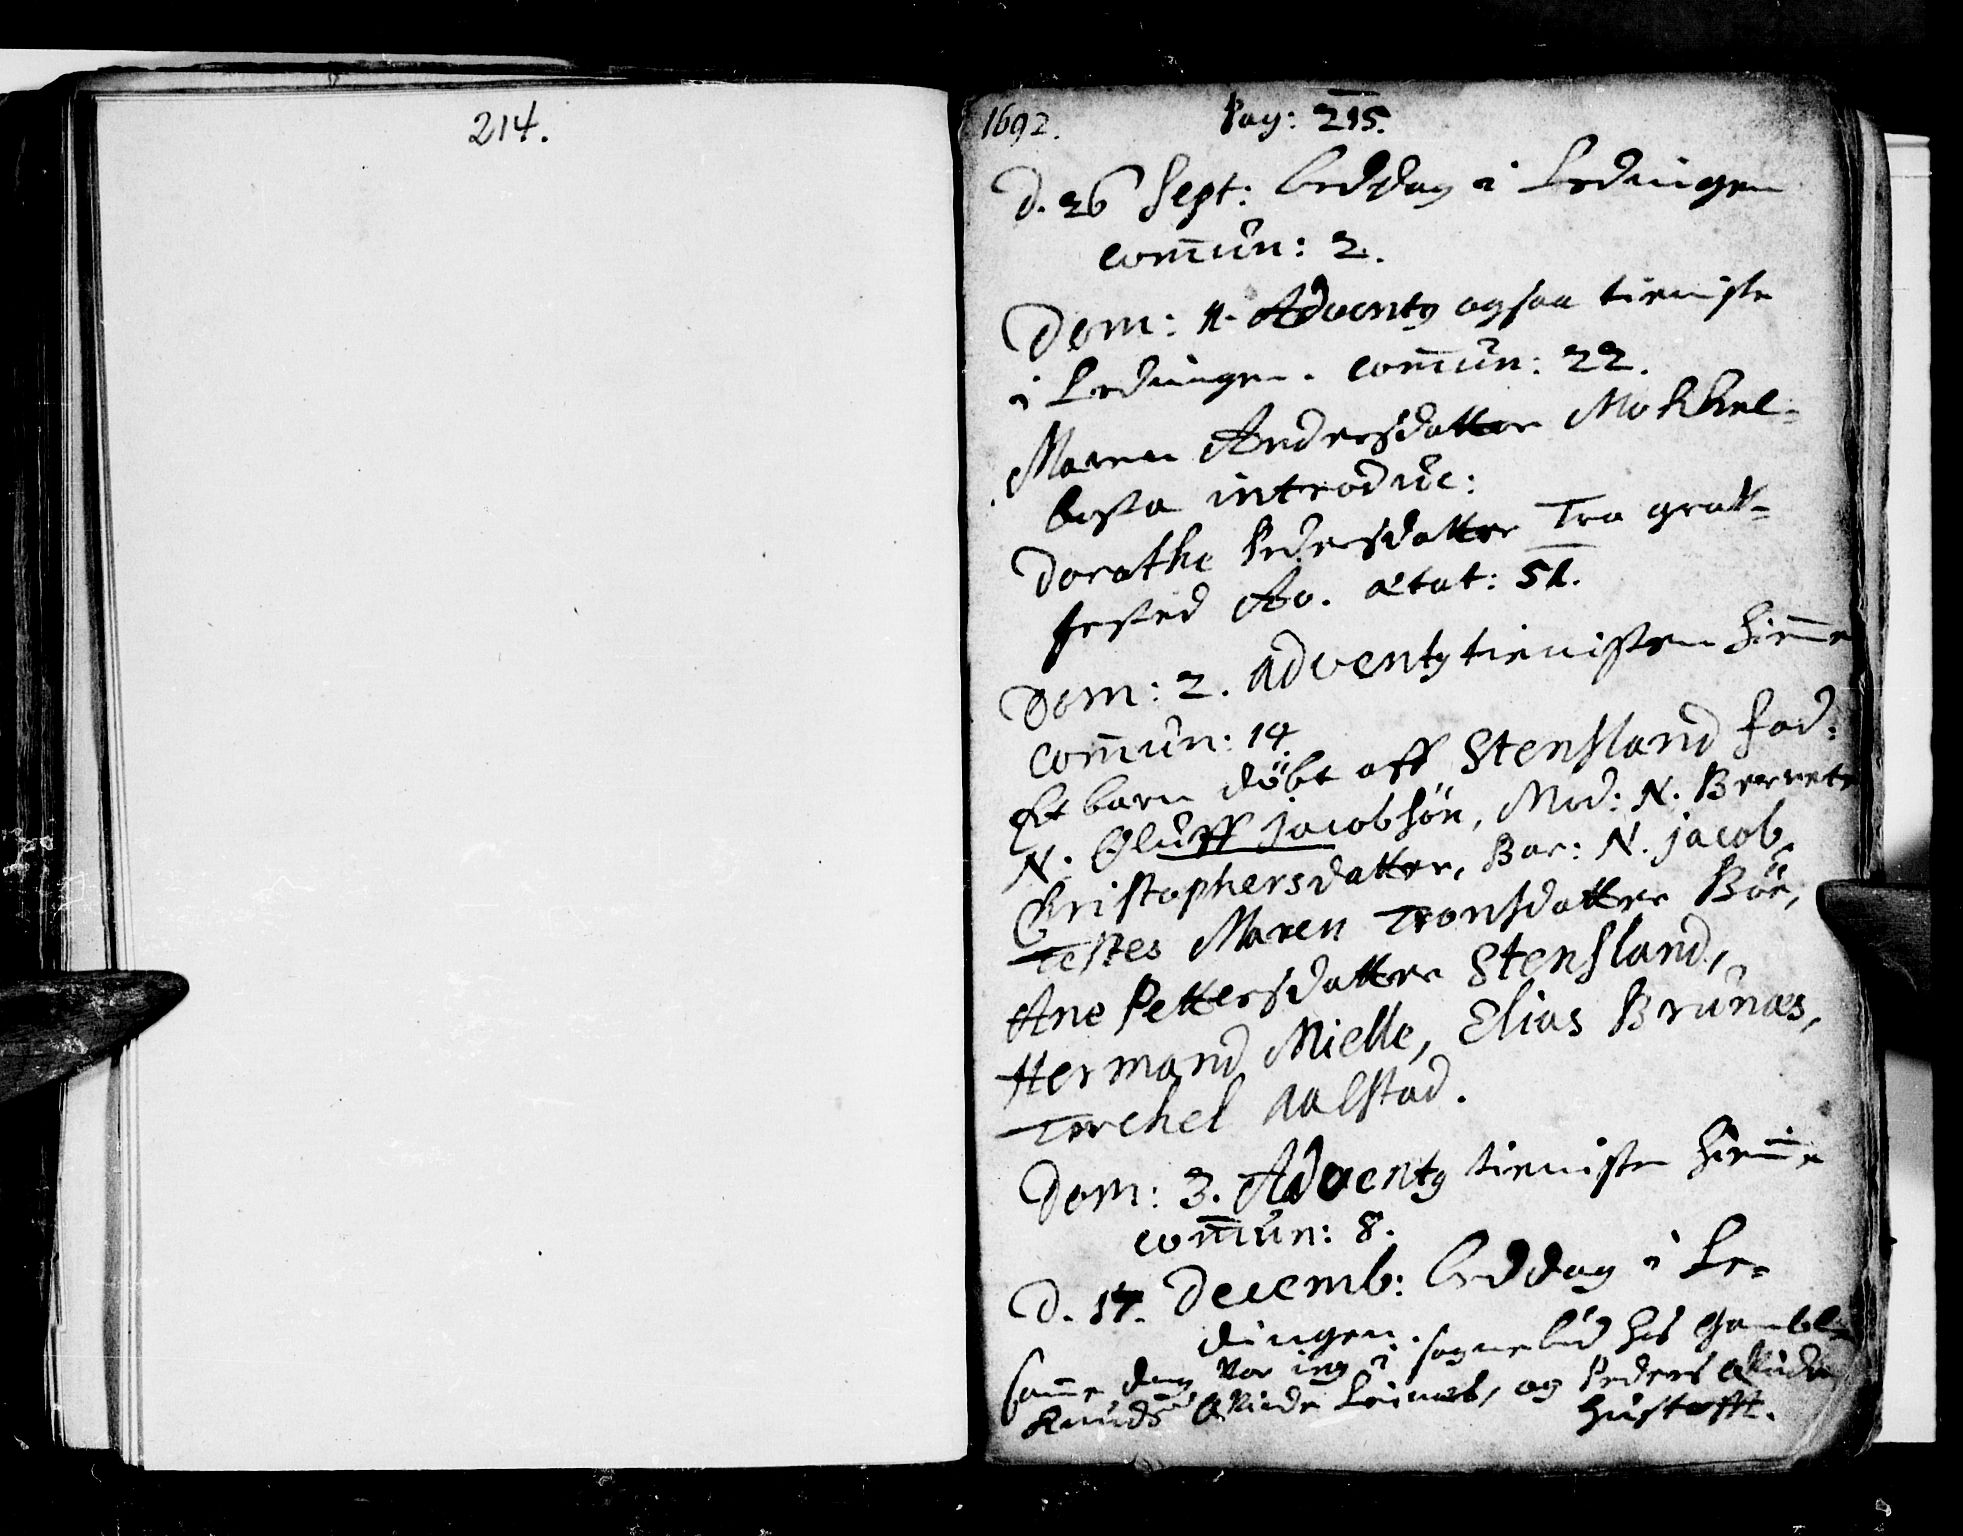 214.
1692. Pag: 215.
D. 26 Sept: bededag i Lødingen
com̄un: 2.
Dom: 1. Adventg ogsaa tieniste
i Lødingen. com̄un: 22.
Maren Andersdatter Mokkel-
bosta introduc:
Dorathe Pedersdatter Traa graff-
fested Ao. ætat: 51.
Dom: 2. Adventg tienisten hiem̄e
com̄un: 14.
Et barn döbt aff Stensland fad:
N. Oluff jacobsön, Mod: N. Berrete
Christophersdatter, Bar: N. jacob,
Testes Maren Tronsdatter Böe,
Ane Pettersdatter Stensland,
Hermand Mielle, Elias Brunæs,
Torchel Aalstad.
Dom: 3. Adventg tieniste hiem̄e
com̄un: 8.
D. 17. Decemb: beddag i Lø-
dingen.
Sam̄e dag var ieg i sognebud hos Gamble
Knuds Qvinde Leinæs, og Peders Qvinde
Hustofft.